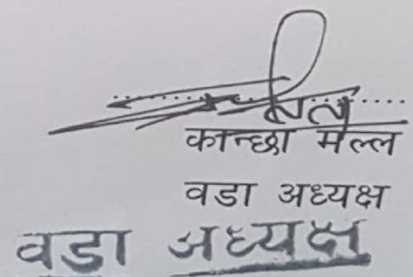 कान्छा मल्ल
वडा अध्यक्ष
वडा अध्यक्ष